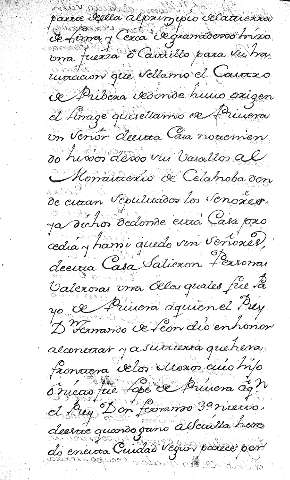 parte della al principio de la tierra
de Lima, y cerca de hizo
una fuerza o Castillo para su ha
vitacion que se llamo el Castro
de Ribera de donde huvo origen
el linage que se llamo de Rivera
un señor de esta Casa no tenien
do hixos dexo sus Vasallos al
Monasterio de Celanoba don
de estan sepultados los señores
ya dichos de donde esta Casa pro
cedia y hami quedo sin señores
de esta Casa Salieron Personas
Valerosas una de las quales fue
yo de Rivera a quien el Rey
Dn Fernando de Leon dio en honor
al con rar y a su tierra que hera
frontera de los Moros cuio hijo
o nieto fue Lope de Rivera q.
el Rey Don fernando 3º nuevo
de este quando gano a Sevilla here
do en esta Ciudad segun parece por